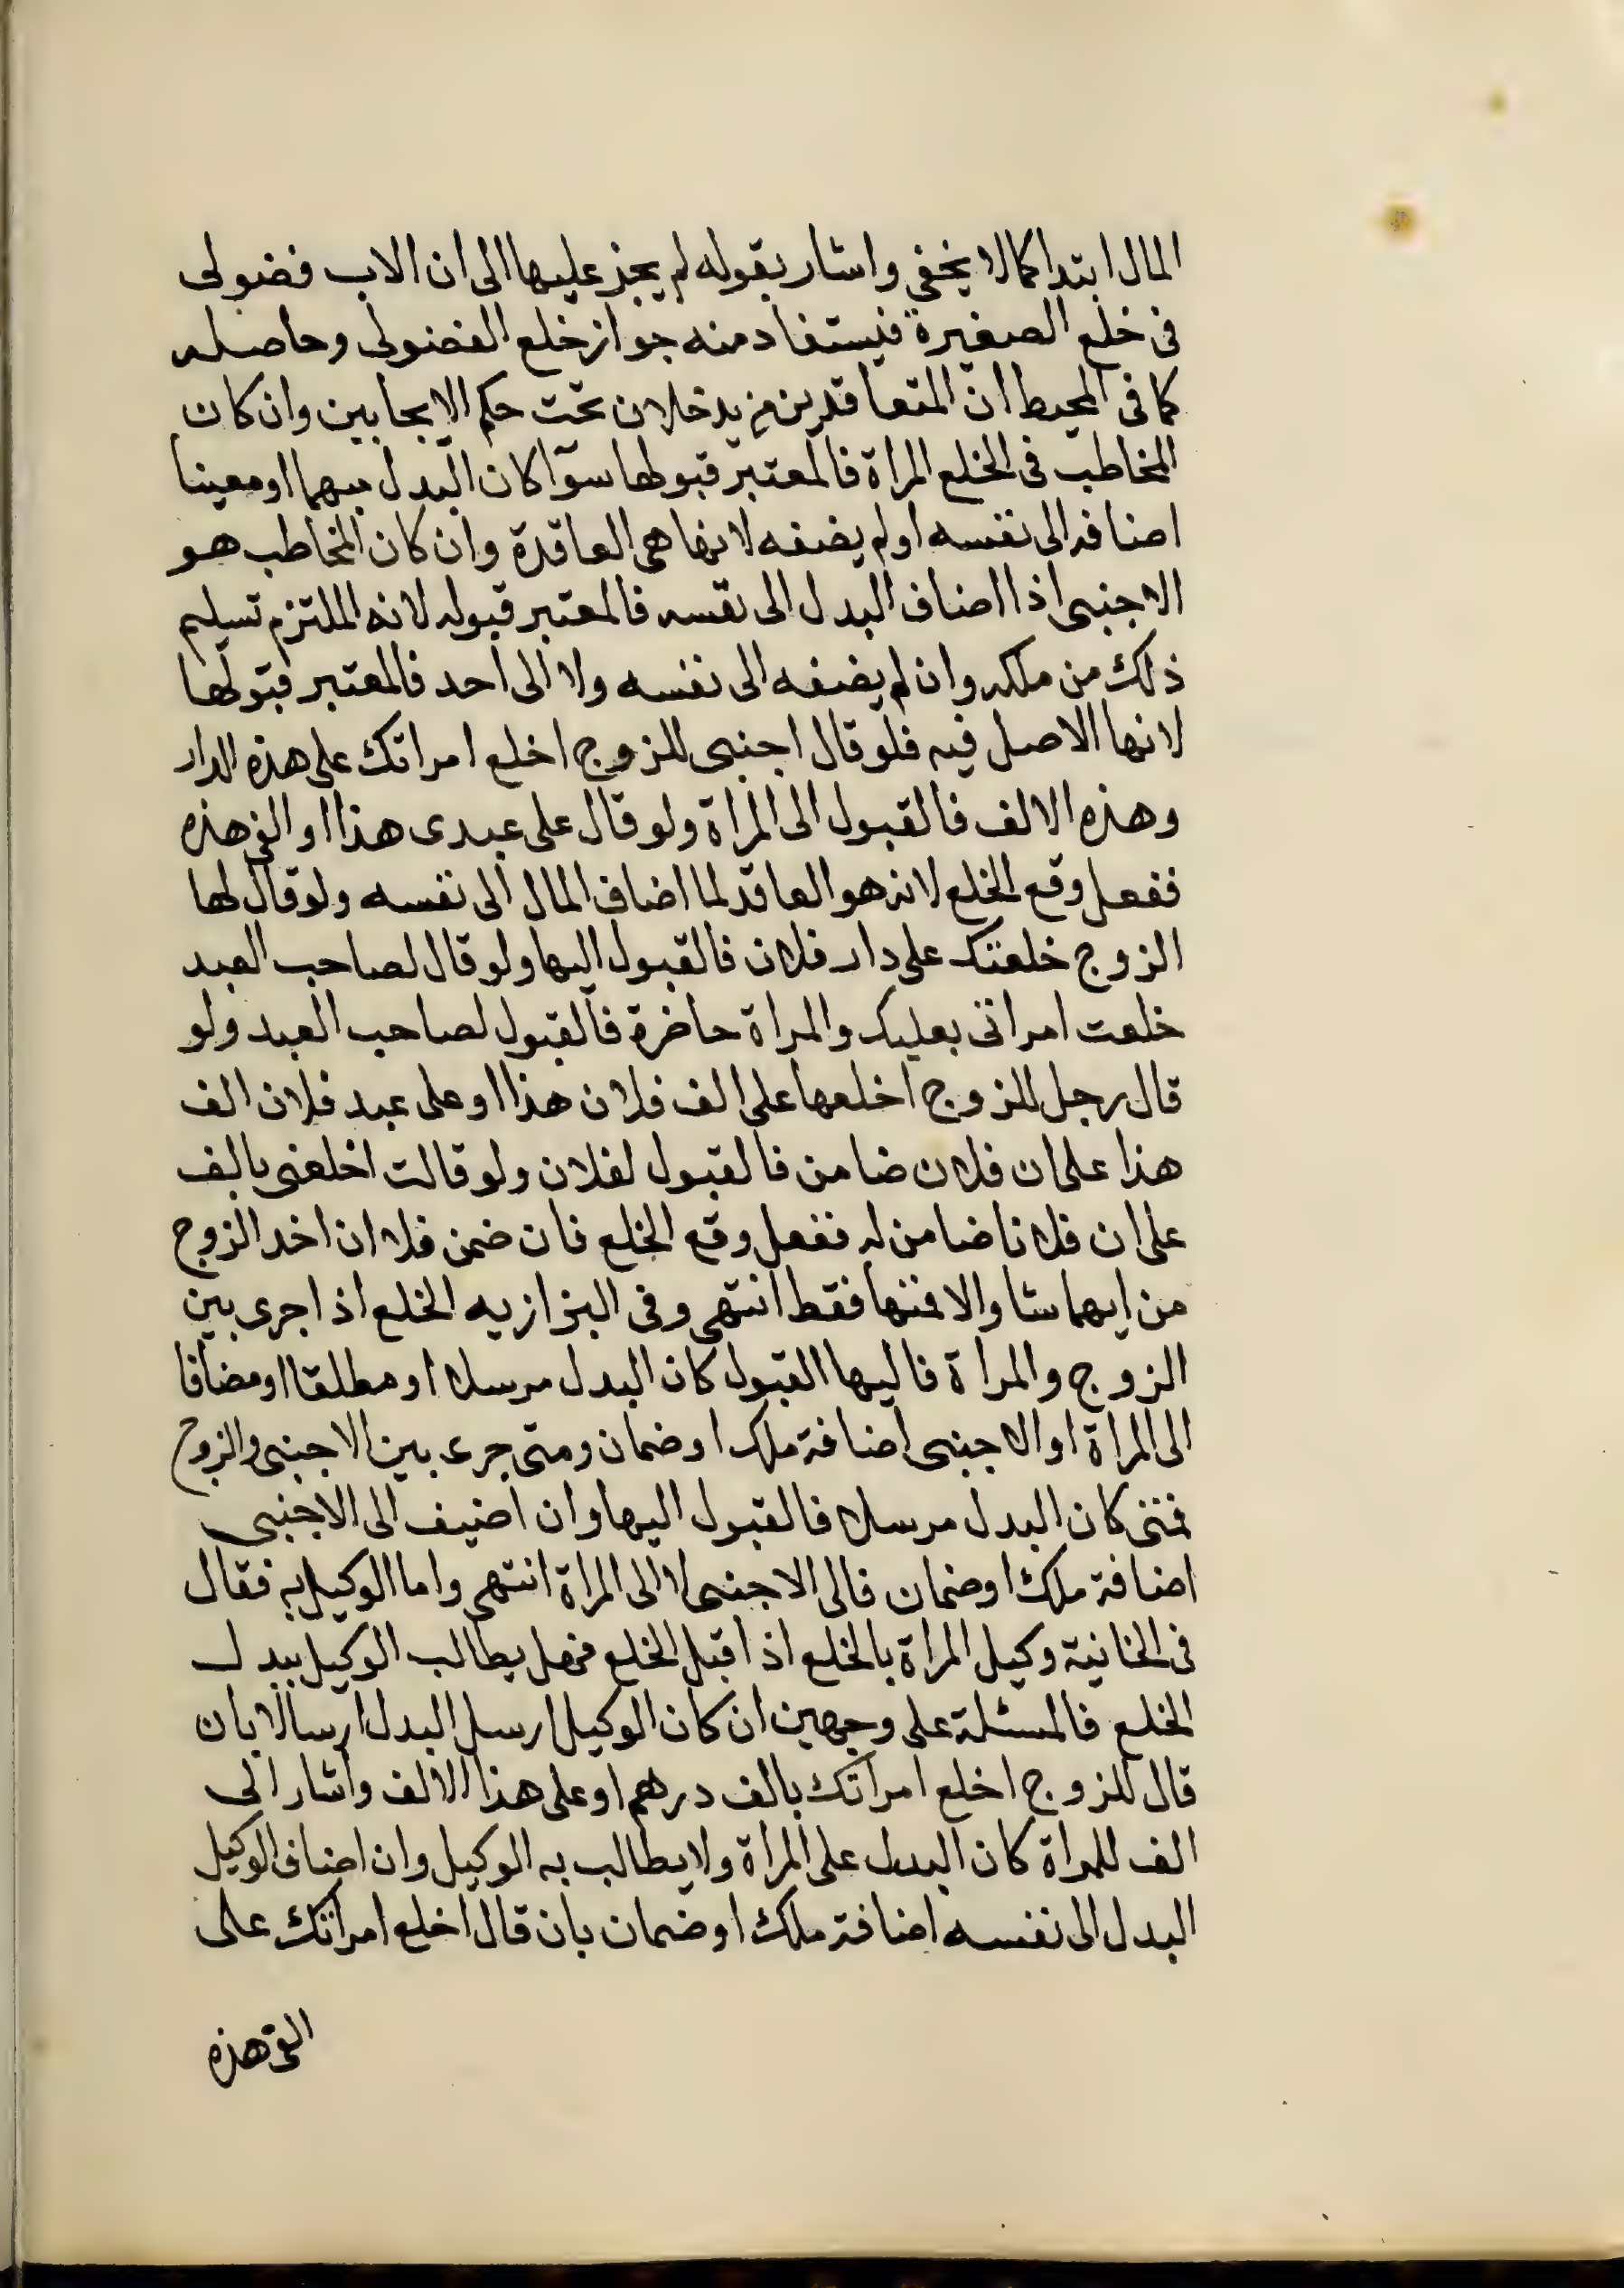 المال ابتدا كما لا يخفي واشار بقوله لم يجز عليها الى ان الاب فضولى
فى خلع الصغيرة فيستفاد منه جواز خلع الفضولى وحاصله
كما فى المحيط ان المتعاقدين يدخلان تحت حكم الايجابين وان كان
المخاطب فى الخلع المراة فالمعتبر قبولها سوآ كان البدل مبهما او معينا
اضافه الى نفسه او لم يضفه لانها هى العاقدة وان كان المخاطب هو
الاجنبى اذا اضاف البدل الى نفسه فالمعتبر قبوله لانه الملتزم تسليم
ذلك من ملكه وان لم يضفه الى نفسه ولا الى احد فالمعتبر قبولها
لانها الاصل فيه فلو قال اجنبى للزوج اخلع امراتك على هذه الدار
وهذه الالف فالقبول الى المراة ولو قال على عبدى هذا او الفى هذه
ففعل وقع الخلع لانه هو العاقد لما اضاف المال الى نفسه ولو قال لها
الزوج خلعتك على دار فلان فالقبول اليها ولو قال لصاحب العبد
خلعت امراتى بعليك والمراة حاضرة فالقبول لصاحب العبد ولو
قال رجل للزوج اخلعها على الف فلان هذا او على عبد فلان الف
هذا على ان فلان ضامن فالقبول لفلان ولو قالت اخلعنى بالف
على ان فلانا ضامن له ففعل وقع الخلع فان ضمن فلان اخد الزوج
من ايهما شا والا فمنها فقط انتهى وفى البزازيه الخلع اذا جرى بين
الزوج والمراة فاليها القبول كان البدل مرسلا او مطلقا او مضافا
الى المراة او الاجنبى اضافة ملك او ضمان ومتى جرى بين الاجنبى والزوج
فمتى كان البدل مرسلا فالقبول اليها وان اضيف الى الاجنبى
اضافة ملك او ضمان فالى الاجنبى لا الى المراة انتهى واما الوكيل به فقال
فى الخانية وكيل المراة بالخلع اذا قبل الخلع فهل يطالب الوكيل ببدل
الخلع فالمسئلة على وجهين ان كان الوكيل ارسل البدل ارسالا بان
قال للزوج اخلع امراتك بالف درهم او على هذا الالف واشار الى
الف للمراة كان البدل على المراة ولا يطالب به الوكيل وان اضاف الوكيل
البدل الى نفسه اضافة ملك او ضمان بان قال اخلع امراتك على
الفى هذه